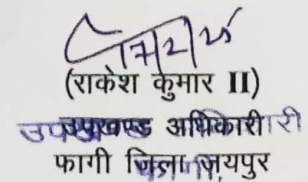 17/2/25
(राकेश कुमार II)
उपखण्ड अधिकारी
फागी जिला जयपुर